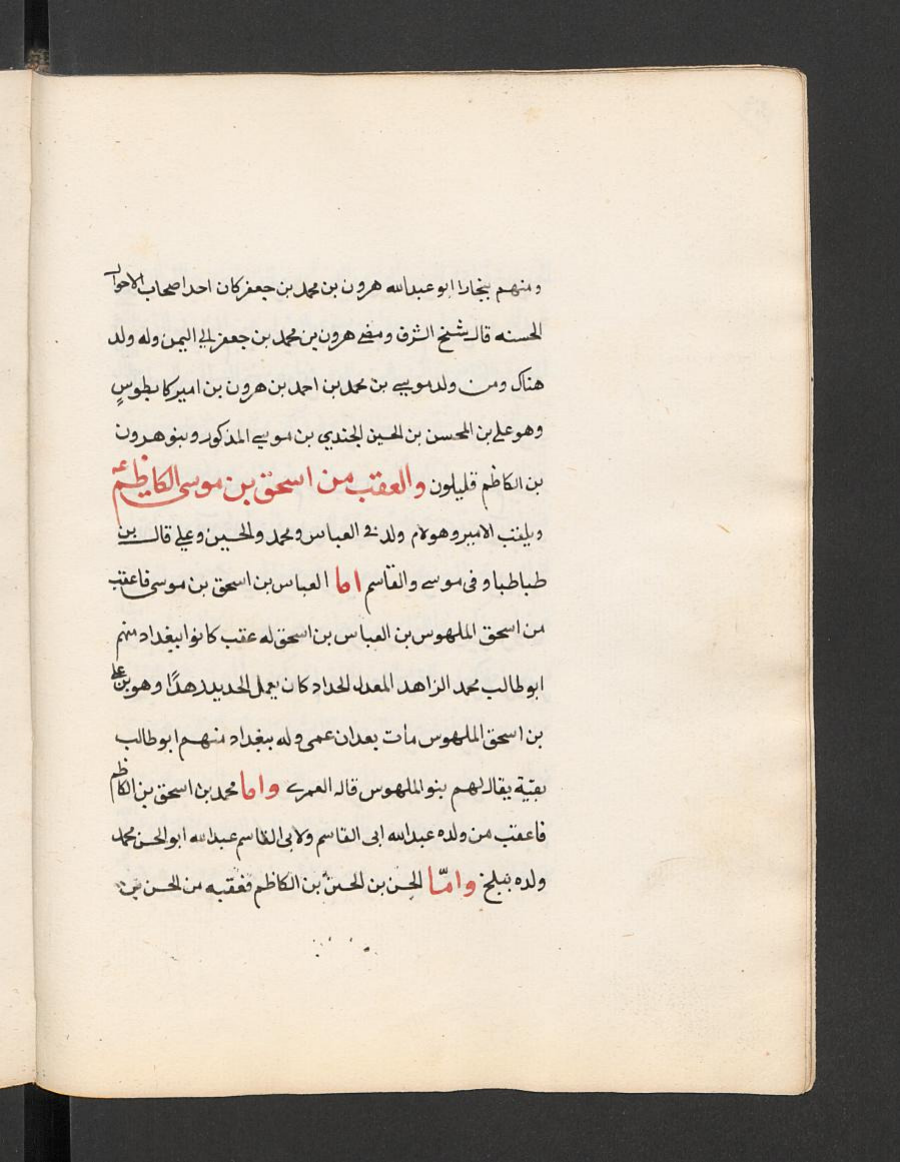 ومنهم ببخارا ابو عبدالله هرون بن محمد بن جعفر كان احد اصحاب الاحوال
الحسنه قال شيخ الشرف ومضى هرون بن محمد بن جعفر الى اليمن وله ولد
هناك ومن ولد موسى بن محمد بن احمد بن هرون بن اميركا بطوس
وهو على بن المحسن بن الحسين الجندي بن موسى المذكور وبنو هرون
بن الكاظم قليلون والعقب من اسحق بن موسى الكاظم ع
ويلقب الامير وهو لام ولد فى العباس ومحمد والحسين وعلى قال بن
طباطبا وفى موسى والقاسم اما العباس بن اسحق بن موسى فاعقب
من اسحق الملهوس بن العباس بن اسحق له عقب كانوا ببغداد منهم
ابو طالب محمد الزاهد المعدل الحداد كان يعمل الحديد زهدًا وهو بن على
بن اسحق الملهوس مات بعد ان عمى وله ببغداد منهم ابو طالب
بقية يقال لهم بنو الملهوس قاله العمرى واما محمد بن اسحق بن الكاظم
فاعقب من ولده عبدالله ابى القاسم ولابى القاسم عبدالله ابو الحسن محمد
ولده ببلخ وامّا الحسن بن الحسين بن الكاظم فعقبه من الحسن بن